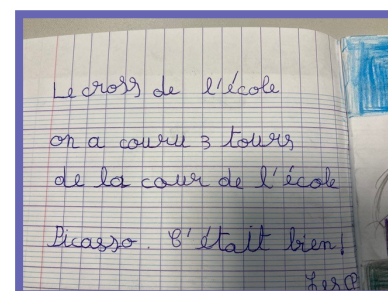 Le cross de l'école
on a couru 3 tours
de la cour de l'école
Picasso. C'était bien!
Les